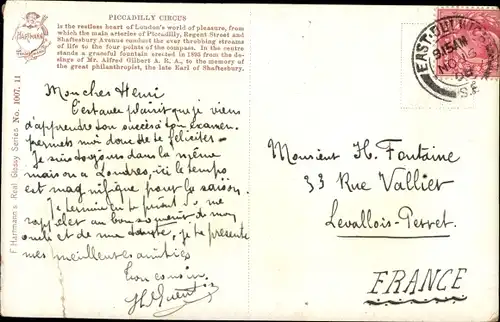 PICCADILLY CIRCUS
is the restless heart of London's world of pleasure, from
which the main arteries of Piccadilly, Regent Street and
Shaftesbury Avenue conduct the ever throbbing streams
of life to the four points of the compass. In the centre
stands a graceful fountain erected in 1893 from the de-
signs of Mr. Alfred Gilbert A. R. A., to the memory of
the great philanthropist, the late Earl of Shaftesbury.
Hartmann
F Hartmann's Real Glossy Series No. 1007. 11
Mon cher Henri
C'est avec plaisir que je viens
d'apprendre ton succès à ton examen
permets moi donc de te féliciter
Je suis toujours dans la même
maison à Londres, ici le temps
est magnifique pour la saison.
Je termine en te priant de me
rappeler au bon souvenir de mon
oncle et de ma tante, je te présente
mes meilleures amitiés
Ton cousin
EAST DULWICH
9.15AM
NO
08
S.E
Monsieur H. Fontaine
33 Rue Vallier
Levallois-Perret.
FRANCE